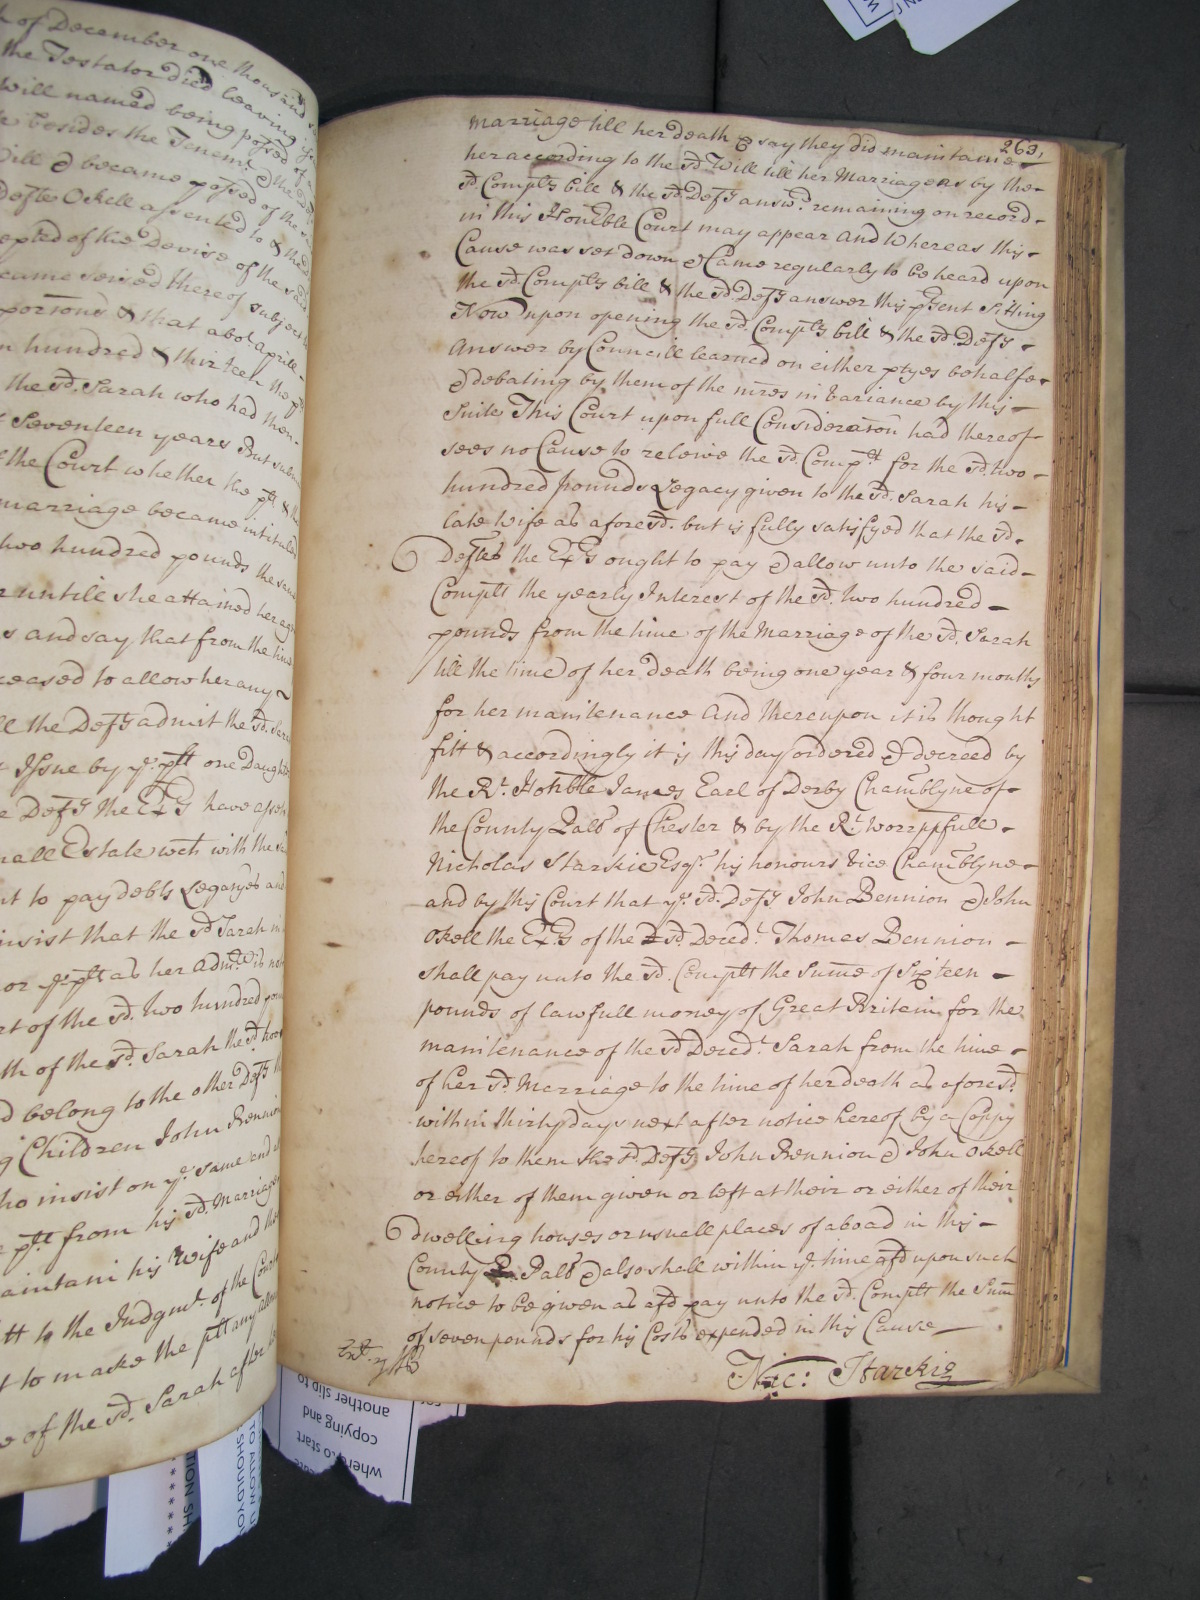 of December one thousand
the Testator died leaving
Will named being possed of
besides the Tenemt & the
Will & became possed of the
Deftes Okell assented to &
epted of the Devise of the said
came seised thereof subject
portions & that abot Aprill
hundred & thirteen the
the sd. Sarah who had then
Seventeen years But
the Court whether the plt &
marriage became intituled
two hundred pounds the same
untill she attained her age
and say that from the time
ceased to allow her any
the Defts admit the sd.
Issue by ye. plt one Daughter
Defts the Exrs have
small Estate wch with the
to pay debts Legacyes and
insist that the sd Sarah
or ye plt as her Admr. is not
of the sd. two hundred
of the sd. Sarah the sd two
belong to the other Defts
Children John Bennion
who insist on ye. same and
plt from his sd. Marriage
maintain his Wife and
to the Judgmt. of the Court
to make the plt any
of the sd. Sarah after
263.
marriage till her death & say they did maintaine
her according to the sd. Will till her Marriage as by the
sd Complts bill & the sd Defts answr. remaining on record
in this Honble Court may appear And Whereas this
Cause was set down & Came regularly to be heard upon
the sd. Complts bill & the sd Defts answer this psent Sitting
Now upon opening the sd. Complts bill & the sd Defts
Answer by Councill learned on either ptyes behalfe
& debating by them of the mres in Variance by this
Suite This Court upon full Consideration had thereof
sees no Cause to releive the sd. Complt for the sd. two
hundred pounds Legacy given to the sd. Sarah his
late Wife as aforesd. but is fully satisfyed that the sd.
Deftes the Exrs ought to pay & allow unto the said
Complt the yearly Interest of the sd. two hundred
pounds from the time of the Marriage of the sd. Sarah
till the time of her death being one year & four months
for her maintenance And thereupon it is thought
fitt & accordingly it is this day ordered & decreed by
the Rt. Honble James Earl of Derby Chamblyne of
the County Pals of Chester & by the Rt. worppfull
Nicholas Starkie Esqr. his honours Vice Chamblyne
and by this Court that ye. sd. Defts John Bennion & John
Okell the Exrs of the sd. Decedt. Thomas Bennion
shall pay unto the sd. Complt the Sume of Sixteen
pounds of lawfull money of Great Britain for the
maintenance of the sd Decedt. Sarah from the time
of her sd. Marriage to the time of her death as aforesd.
within thirty days next after notice hereof by a Coppy
hereof to them the sd. Defts John Bennion & John Okell
or either of them given or left at their or either of their
dwelling houses or usuall places of aboad in this
County Pals & also shall within ye. time afd upon such
notice to be given as afd pay unto the sd. Complt the Sum
of seven pounds for his Costs expended in this Cause
Nic: Starkie
another slip to
copying and
where to start
TO ALLOW
SHOULD YOU